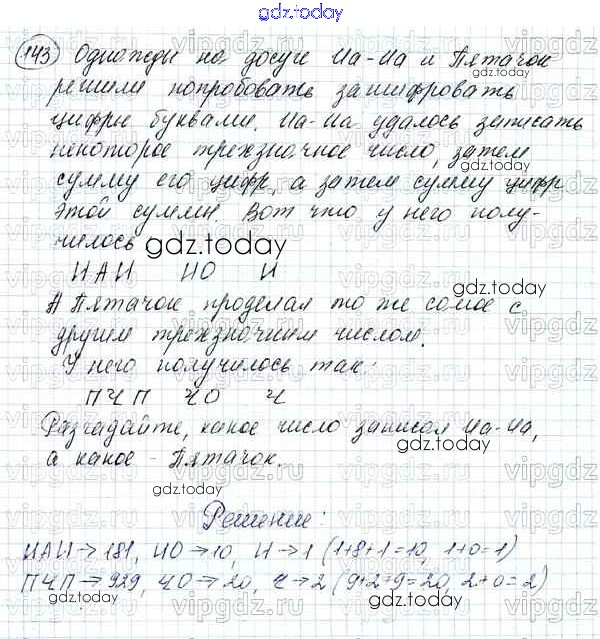 gdz.today
143 Однажды на досуге Иа-Иа и Пятачок
решили попробовать зашифровать
цифры буквами. Иа-Иа удалось записать
некоторое трехзначное число, затем
сумму его цифр, а затем сумму цифр
этой суммы. Вот что у него полу-
чилось
ИАИ ИО И
А Пятачок проделал то же самое с
другим трехзначным числом.
У него получилось так:
ПЧП ЧО Ч
Разгадайте, какое число записал Иа-Иа,
а какое - Пятачок.
Решение:
ИАИ → 181, ИО → 10, И → 1 (1+8+1=10, 1+0=1)
ПЧП → 929, ЧО → 20, Ч → 2 (9+2+9=20, 2+0=2)